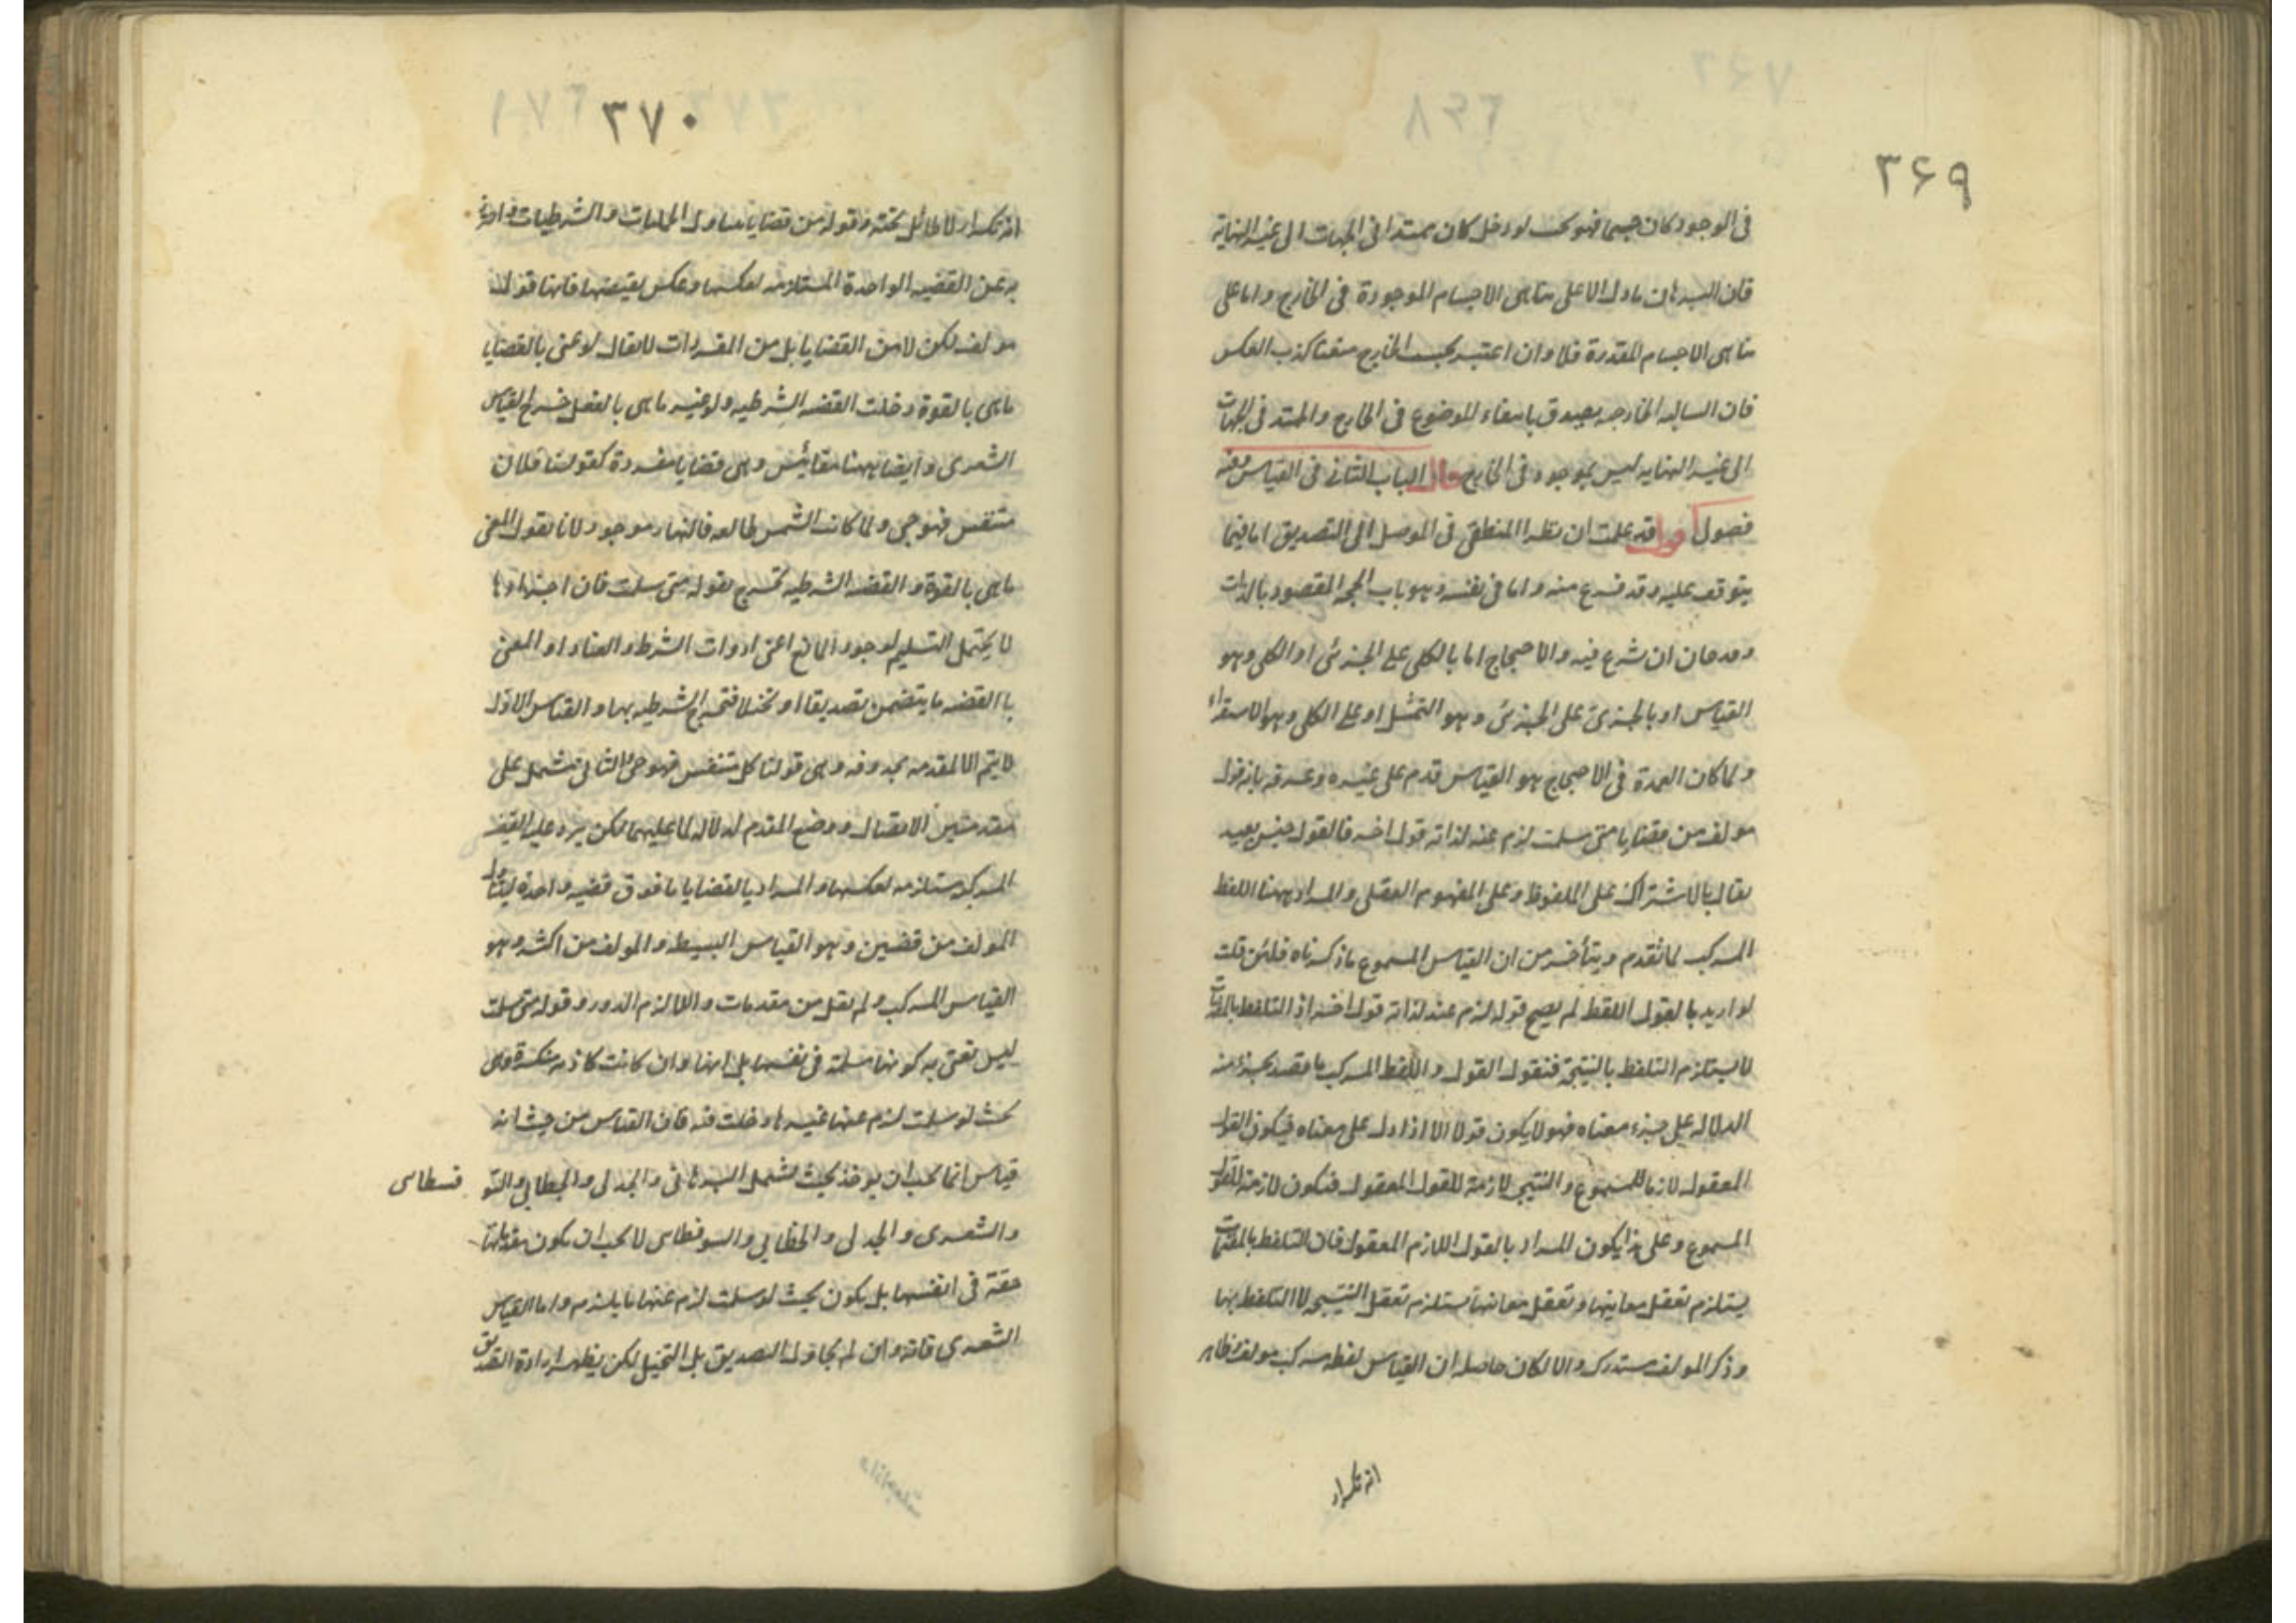 ۳۶۹
فى الوجود كان جسما فهو بحيث لو دخل كان ممتدا فى الجهات الى غير النهاية
فان البرهان ما دل الا على تناهى الاجسام الموجودة فى الخارج واما على
تناهى الاجسام المقدرة فلا وان اعتبر بحسب الخارج منعنا كذب العكس
فان السالبه الخارجيه يصدق بانتفاء الموضوع فى الخارج والممتد فى الجهات
الى غير النهايه ليس بموجود فى الخارج قال الباب الثانى فى القياس وفيه
فصول اقول قد علمت ان نظر المنطقى فى الموصل الى التصديق اما فيما
يتوقف عليه وقد فرع منه واما فى نفسه وهو باب الحجه المقصود بالذات
وقد حان ان نشرع فيه والاحتجاج اما بالكلى على الجزئى او الكلى وهو
القياس او بالجزئى على الجزئى وهو التمثيل او على الكلى وهو الاستقراء
ولما كان العمدة فى الاحتجاج هو القياس قدم على غيره وعرفه بانه قول
مولف من قضايا متى سلمت لزم عنه لذاته قول اخر فالقول جنس بعيد
يقال بالاشتراك على الملفوظ وعلى المفهوم العقلى والمراد ههنا اللفظ
المركب لما تقدم ويتأخر من ان القياس المسموع ما ذكرناه فلئن قلت
لو اريد بالقول اللفظ لم يصح قوله لزم عنه لذاته قول اخر اذ التلفظ بالمقدمات
لا يستلزم التلفظ بالنتيجة فنقول القول واللفظ المركب ما قصد بجزء منه
الدلاله على جزء معناه فهو لا يكون قولا الا اذا دل على معناه فيكون القول
المعقول لازما للمسموع والنتيجه لازمة للقول المعقول فتكون لازمة للقول
المسموع وعلى هذا يكون المراد بالقول اللازم المعقول فان التلفظ بالمقدمات
يستلزم تعقل معانيها وتعقل معانيها يستلزم تعقل النتيجه لا التلفظ بها
وذكر المولف مستدرك والا لكان حاصله ان القياس لفظ مركب مولف وظاهر
انه تكرار
۳۷۰
انه تكرار لا طائل تحته وقوله من قضايا يتناول الحمليات والشرطيات واحترز
به عن القضيه الواحدة المستلزمه لعكسها وعكس نقيضها فانها قول
مولف لكن لا من القضايا بل من المفردات لا يقال لو عنى بالقضايا
ما هى بالقوة دخلت القضيه الشرطيه ولو عنى ما هى بالفعل خرج القياس
الشعرى وايضا ههنا مقائيس وهى قضايا مفردة كقولنا فلان
متنفس فهو حى ولما كانت الشمس طالعه فالنهار موجود لانا نقول المعنى
ما هى بالقوة والقضيه الشرطيه تخرج بقوله متى سلمت فان اجزاءها
لا يحتمل التسليم لوجود المانع اعنى ادوات الشرط والعناد او المعنى
بالقضيه ما يتضمن تصديقا او تخيلا فتخرج الشرطيه بها والقياس الاول
لا يتم الا بمقدمه محذوفه وهى قولنا كل متنفس فهو حى والثانى مشتمل على
مقدمتين الاتصال ووضع المقدم لدلاله لما عليهما لكن يرد عليه القضيه
المركبه مستلزمه لعكسها والمراد بالقضايا ما فوق قضيه واحدة ليتناول
المولف من قضيتين وهو القياس البسيط والمولف من اكثر وهو
القياس المركب ولم يقل من مقدمات والا لزم الدور وقوله متى سلمت
ليس نعنى به كونها مسلمة فى نفسها بل انها وان كانت كاذبه منكرة وهى
بحيث لو سلمت لزم عنها غيرها دخلت فيه فان القياس من حيث انه
قياس انما يجب ان يوخذ بحيث تشمل البرهانى والجدلى والخطابى والسو
فسطاسى
والشعرى والجدلى والخطابى والسوفسطاسى لا يجب ان يكون مقدماتها
حقة فى انفسها بل يكون بحيث لو سلمت لزم عنها ما يلزم واما القياس
الشعرى فانه وان لم يحاول التصديق بل التخيل لكن يظهر ارادة التصديق